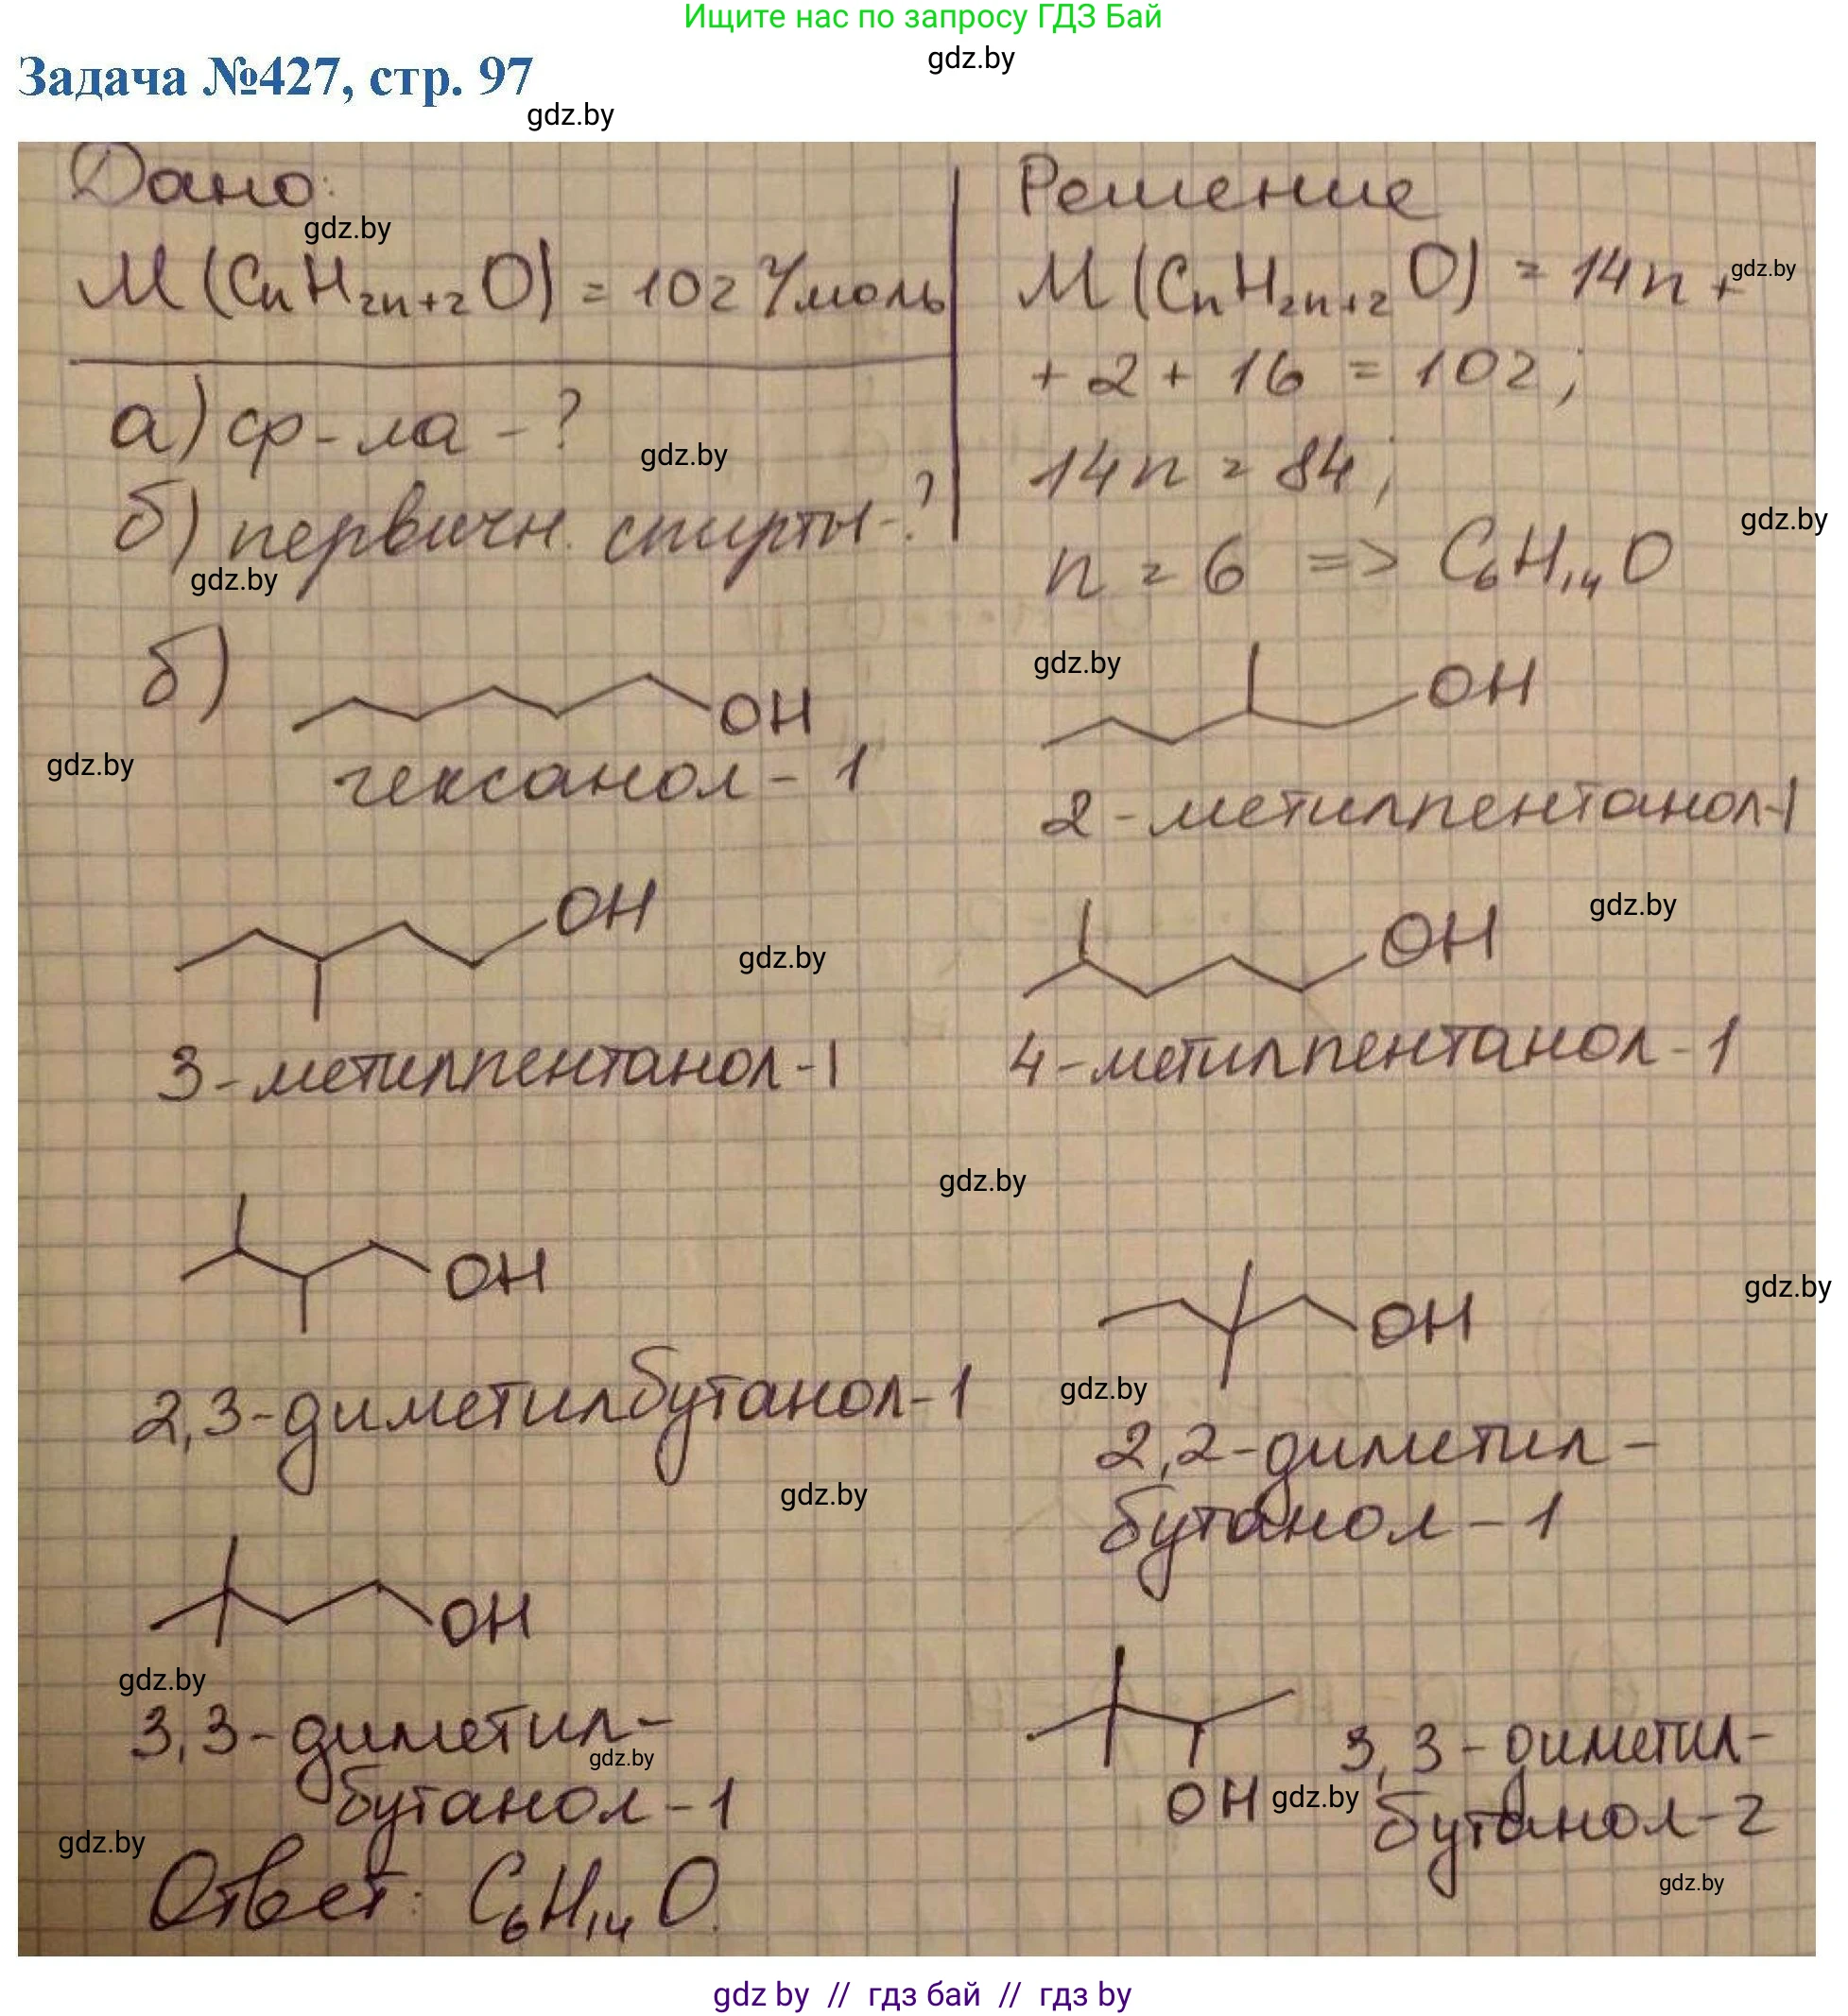 Ищите нас по запросу ГДЗ Бай
gdz.by
Задача №427, стр. 97
gdz.by
Дано:
gdz.by
M(CₙH₂ₙ₊₂O) = 102 г/моль
а) ф-ла - ?
gdz.by
б) первичн. спирты-?
gdz.by
Решение
M(CₙH₂ₙ₊₂O) = 14n +
gdz.by
+ 2 + 16 = 102;
14n = 84;
gdz.by
n = 6 => C₆H₁₄O
б)
OH
gdz.by
гексанол-1
gdz.by
OH
2-метилпентанол-1
OH
gdz.by
3-метилпентанол-1
gdz.by
OH
4-метилпентанол-1
gdz.by
OH
2,3-диметилбутанол-1
gdz.by
gdz.by
OH
gdz.by
2,2-диметил-
бутанол-1
OH
gdz.by
3,3-диметил-
gdz.by
бутанол-1
OH
gdz.by
3,3-диметил-
бутанол-2
gdz.by
gdz.by
Ответ: C₆H₁₄O.
gdz by // гдз бай // гдз by